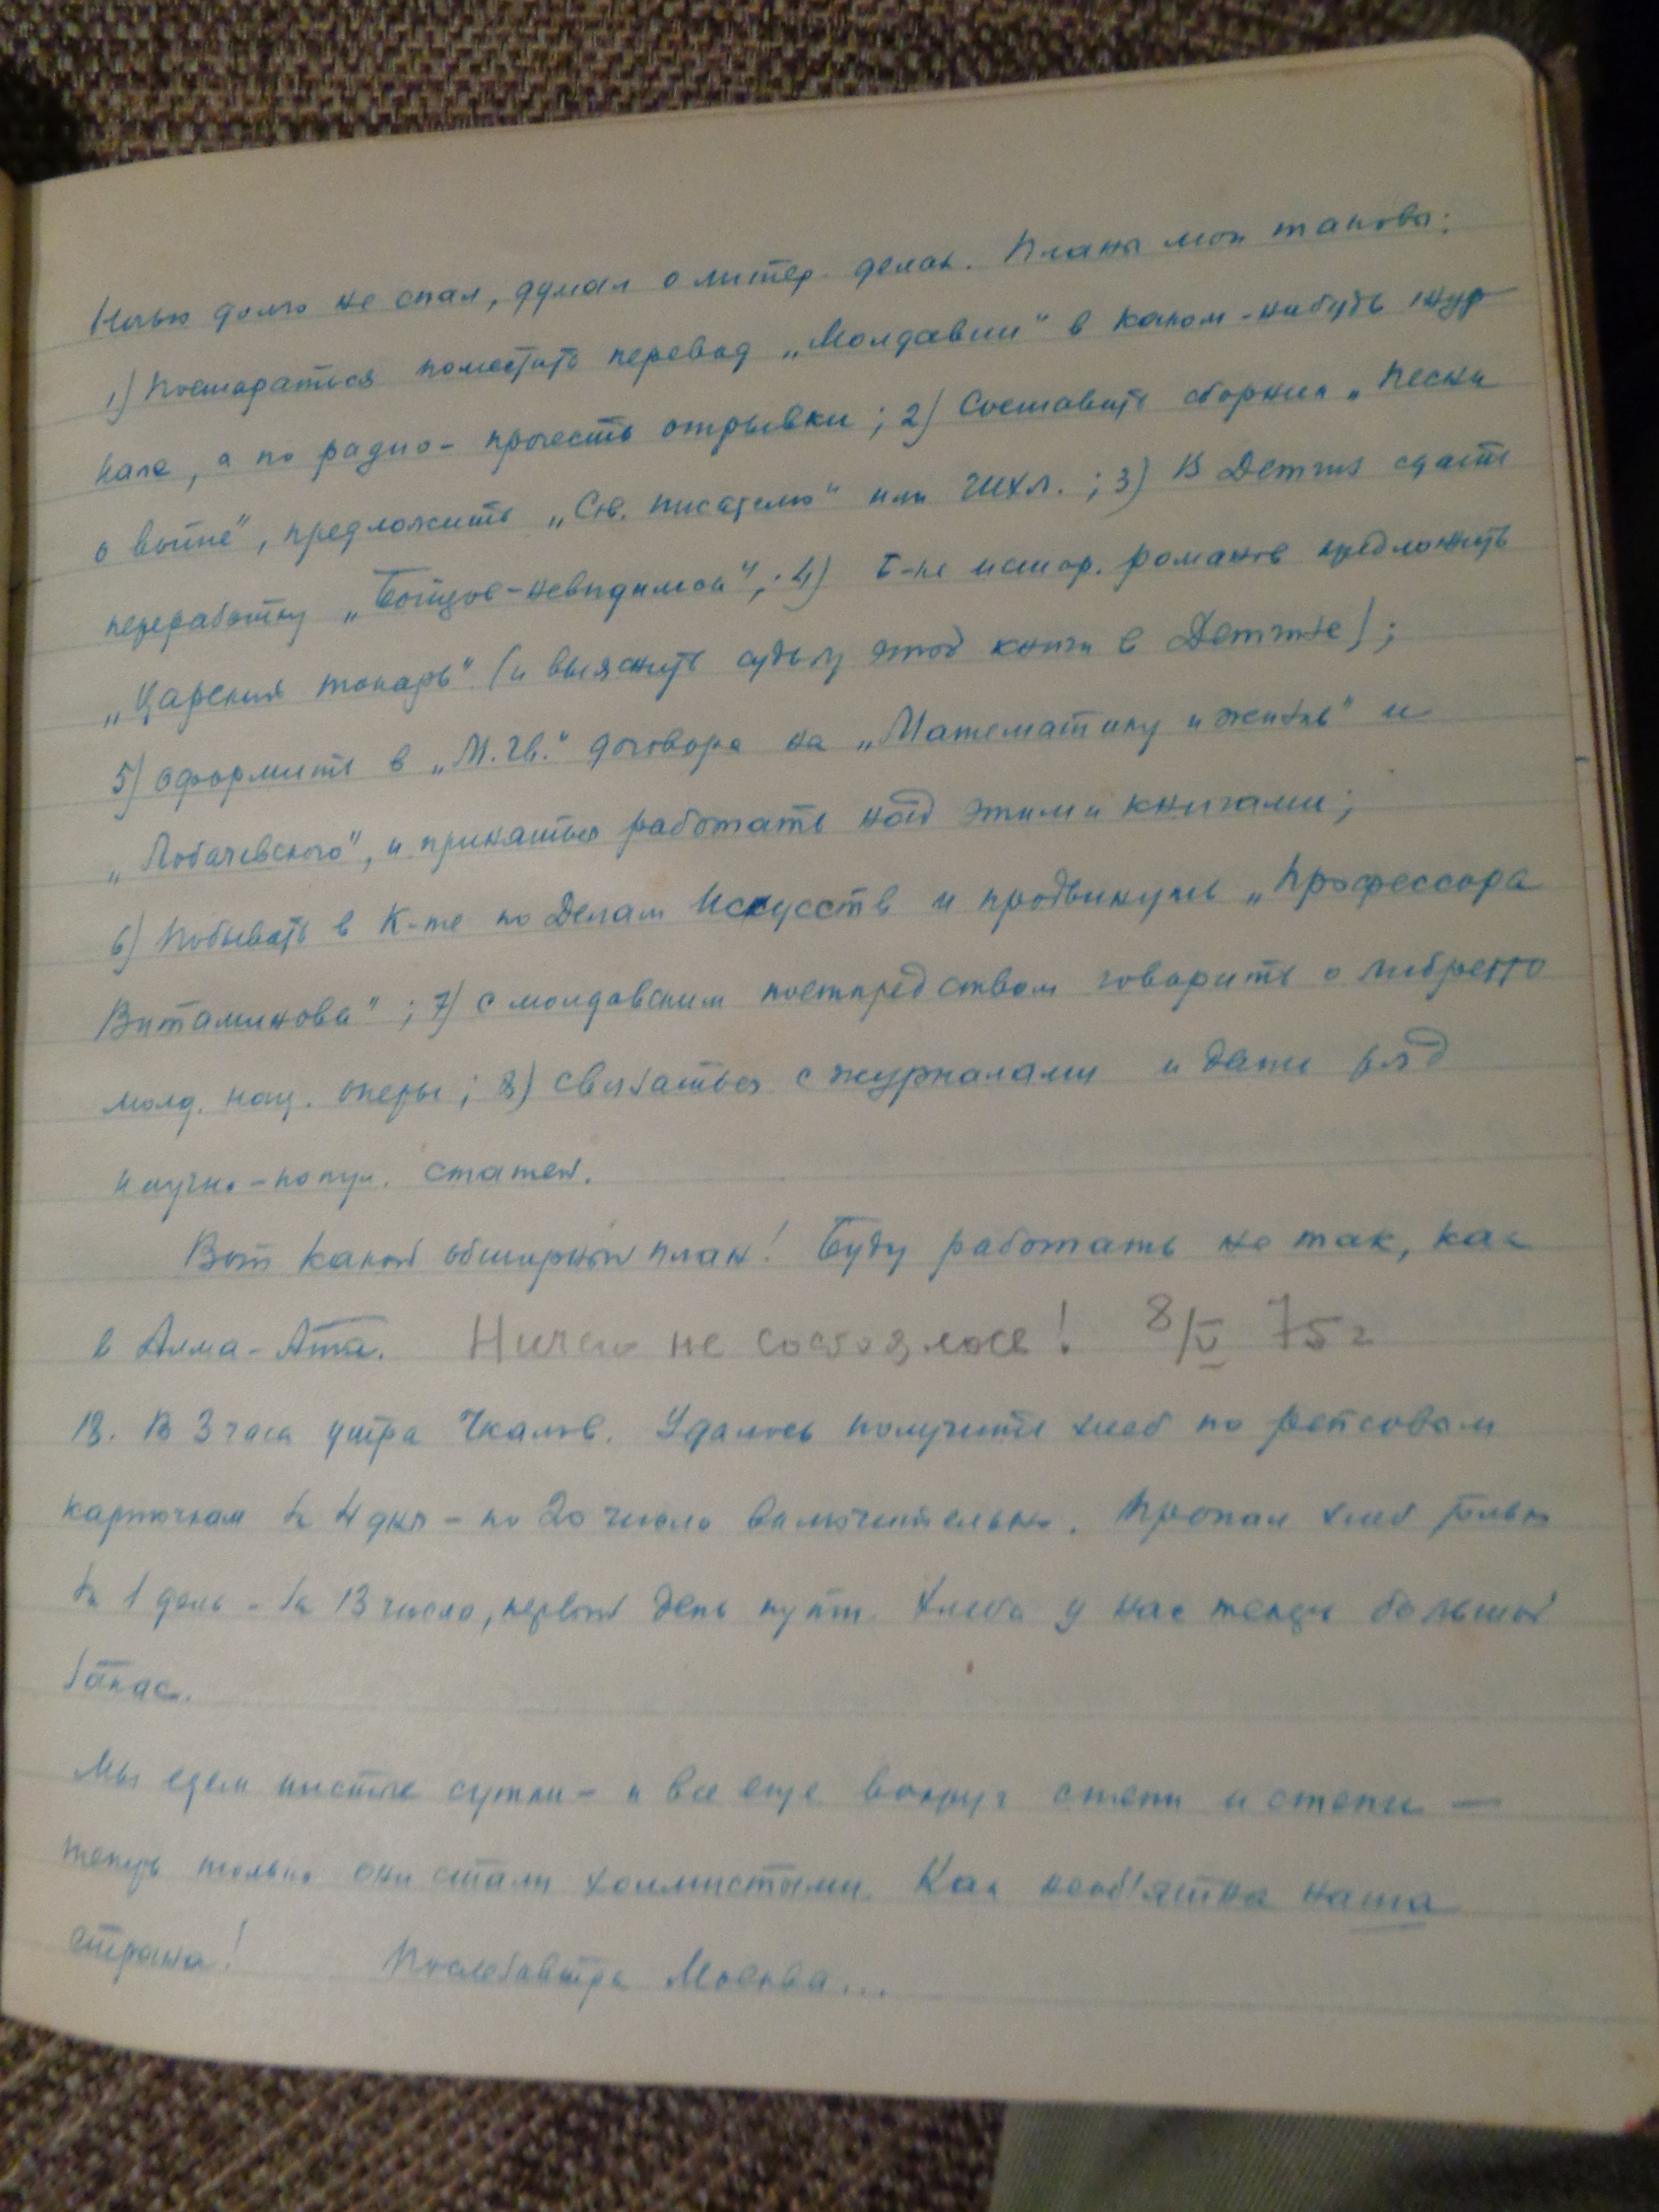 Ночью долго не спал, думал о литер. делах. Планы мои таковы:
1) Постараться поместить перевод „Молдавии" в каком-нибудь жур
нале, а по радио- прочесть отрывки; 2) Составить сборник „Песни
о войне", предложить „Сов. писателю" или ГИХЛ.; 3) В Детгиз сдать
переработку „Бойцов-невидимок"; 4) Б-ке истор. романов предложить
„Царский токарь" (и выяснить судьбу этой книги в Детгизе);
5) Оформить в „М. Гв." договора на „Математику и жизнь" и
„Лобачевского", и приняться работать над этими книгами;
6) Побывать в К-те по Делам Искусств и продвинуть „Профессора
Витаминова"; 7) с молдавским постпредством говорить о либретто
молд. нац. оперы; 8) связаться с журналами и дать ряд
научно-попул. статей.
Вот какой обширный план! Буду работать не так, как
в Алма-Ата. Ничего не состоялось! 8/V 75 г
18. В 3 часа утра Чкалов. Удалось получить хлеб по рейсовым
карточкам за 4 дня - по 20 число включительно. Пропал хлеб только
за 1 день - за 13 число, первый день пути. Хлеба у нас теперь большой
запас.
Мы едем шестые сутки - и все еще вокруг степи и степи —
теперь только они стали холмистыми. Как необ'ятна наша
страна! Послезавтра Москва...